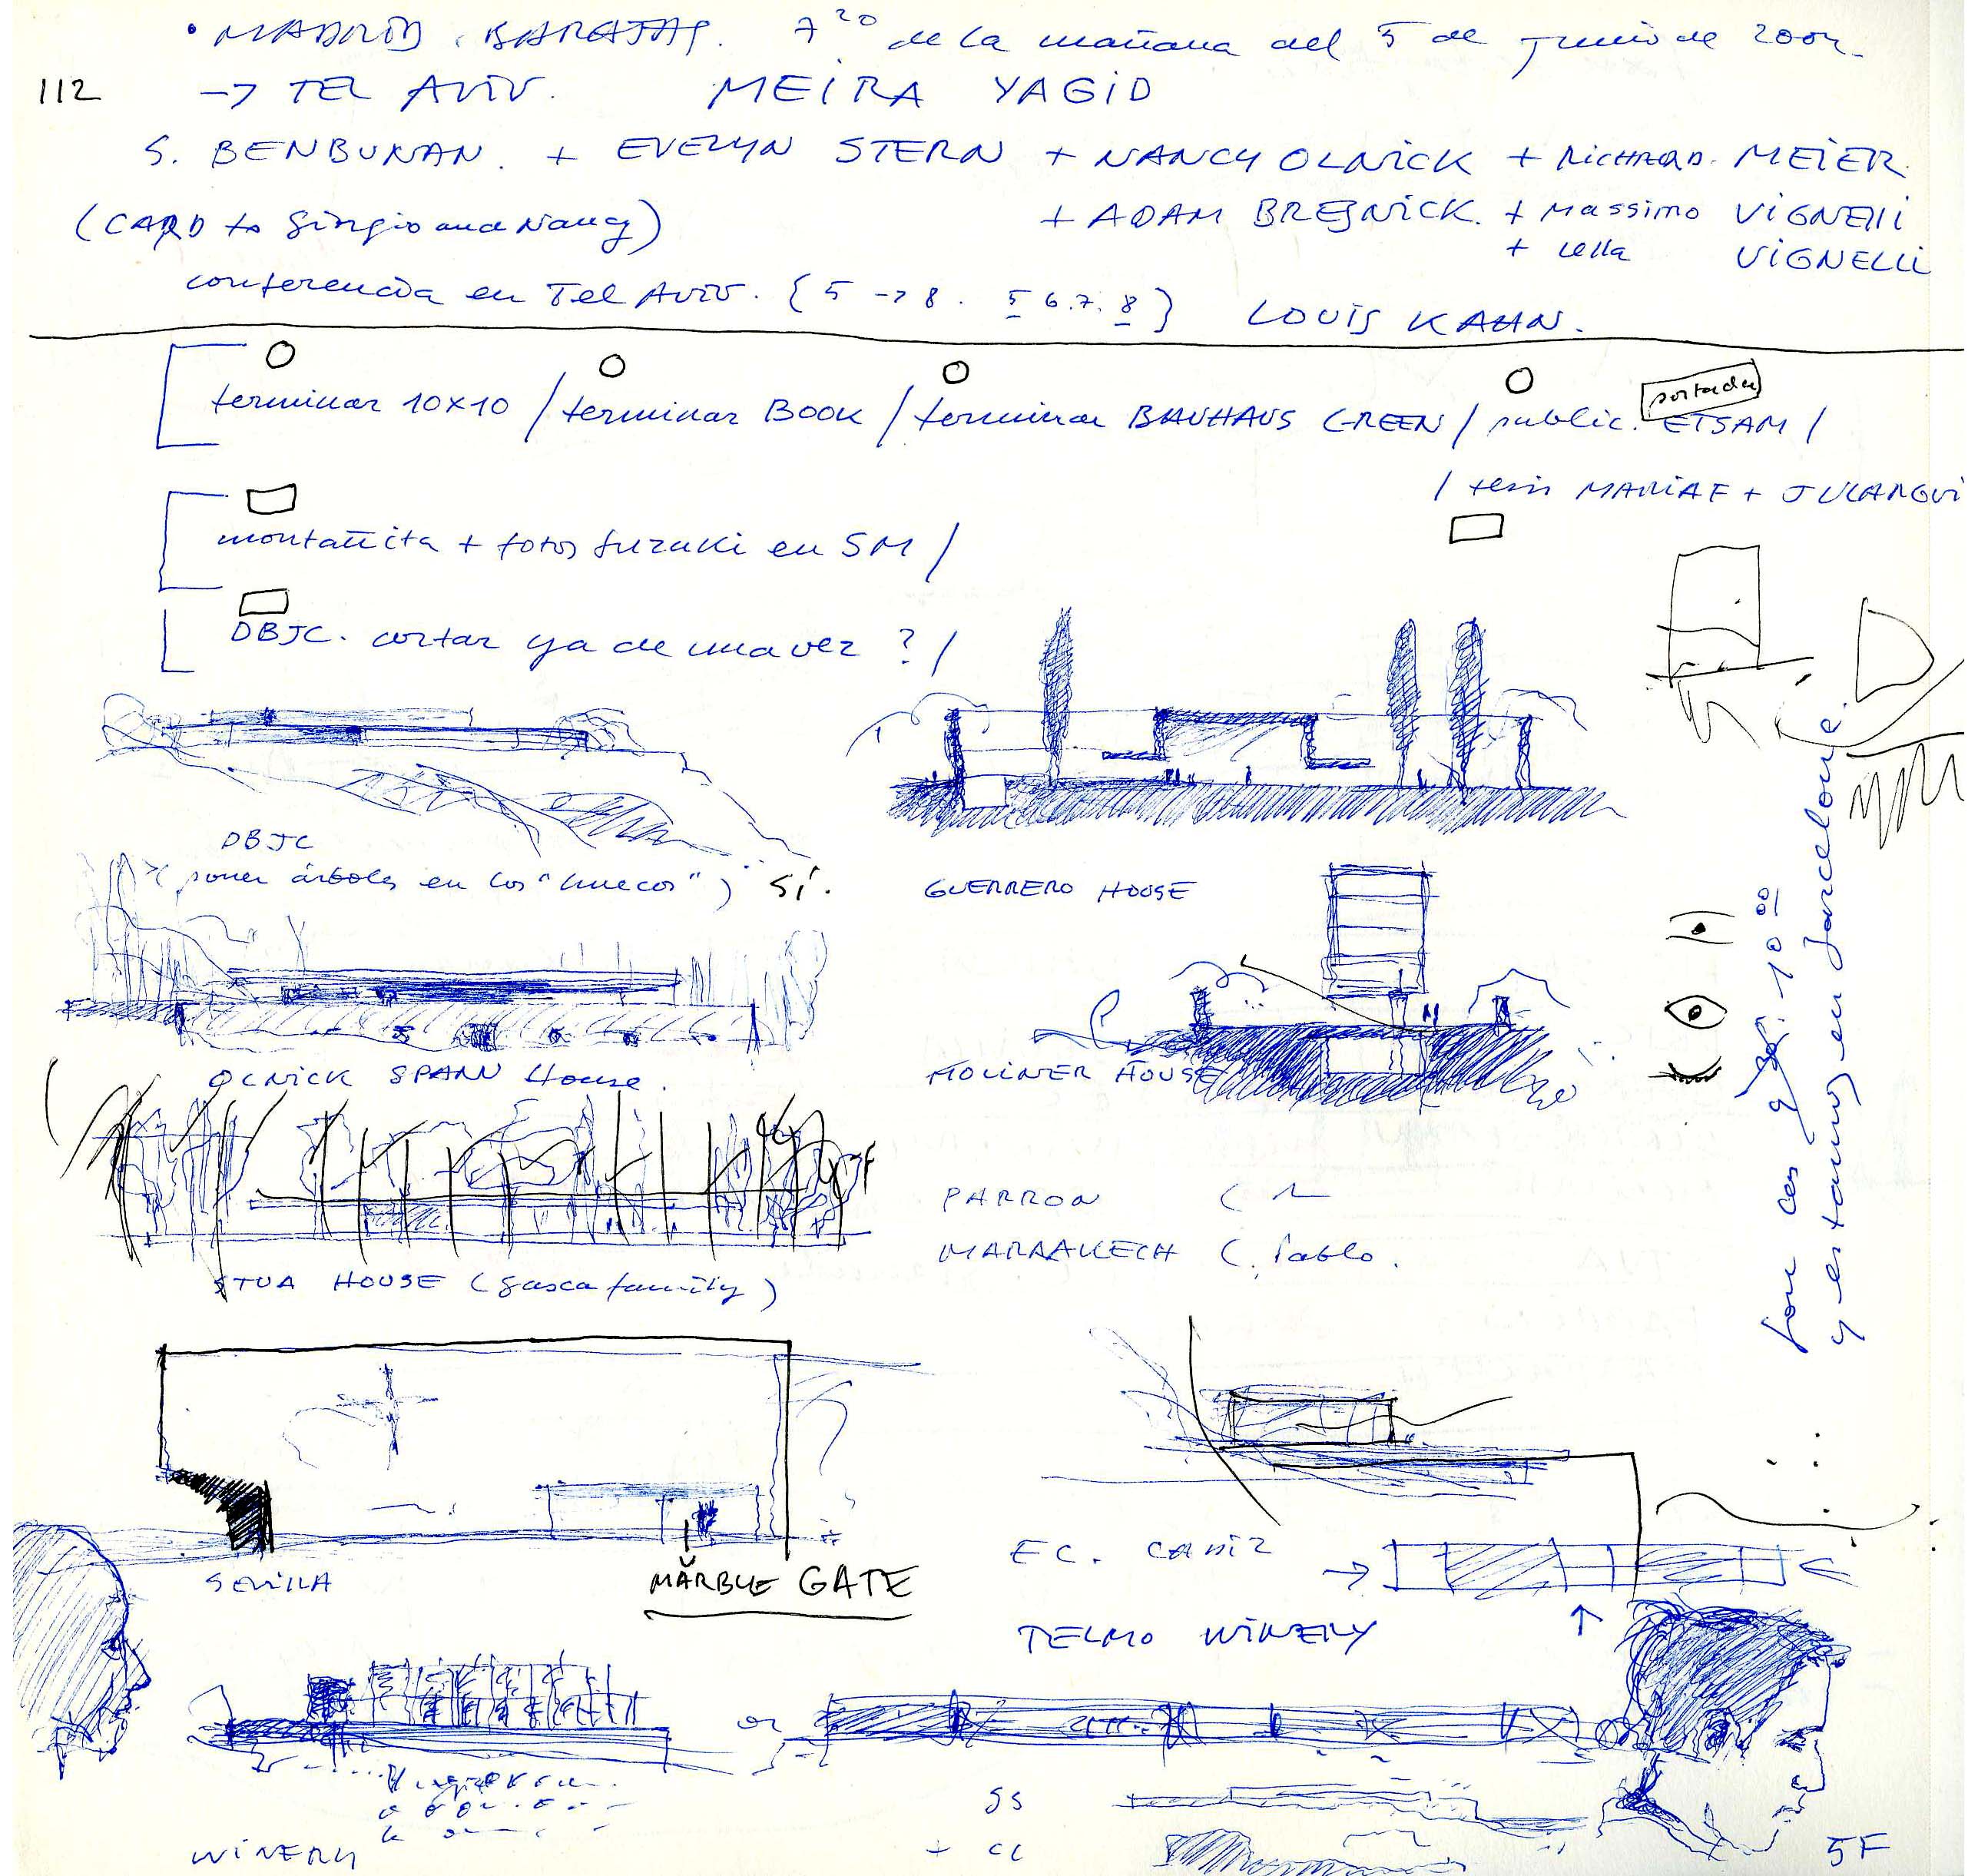 • MADRID. BARAJAS. 7 20 de la mañana del 5 de junio de 2004.
112 → TEL AVIV. MEIRA YAGID
S. BENBUNAN. + EVELYN STERN + NANCY OLNICK + RICHARD. MEIER.
(CARD to Giorgio and Nancy) + ADAM BRESNICK. + Massimo VIGNELLI
+ Lella VIGNELLI
conferencia en Tel Aviv. {5 → 8. 5 6.7.8} LOUIS KAHN.
portada
terminar 10x10 / terminar BOOK / terminar BAUHAUS GREEN / public. ETSAM /
/ tesis MARIA F +
montañita + fotos Suzuki en SM /
DBJC. cortar ya de una vez ? /
DBJC
(poner árboles en los "huecos") SÍ.
GUERRERO HOUSE
OLNICK SPANN House.
MOLINER HOUSE
Son las 10 00
y estamos en Barcelona.
PARRON (
MARRAKECH (. Pablo.
STUA HOUSE (Gasca family)
SEVILLA
MARBLE GATE
EC. CADIZ
TELMO WINERY
or
WINERY
SS
+ CC
5F